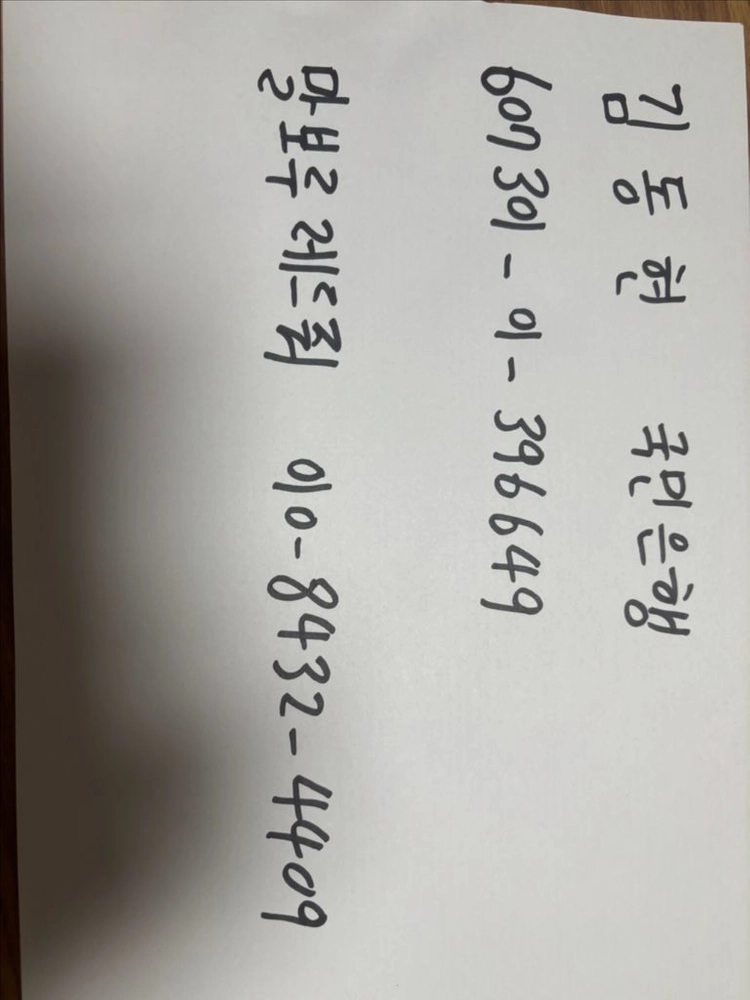 김동현 국민은행
607301-01-396649
말보루 레드휘 010-8432-4409